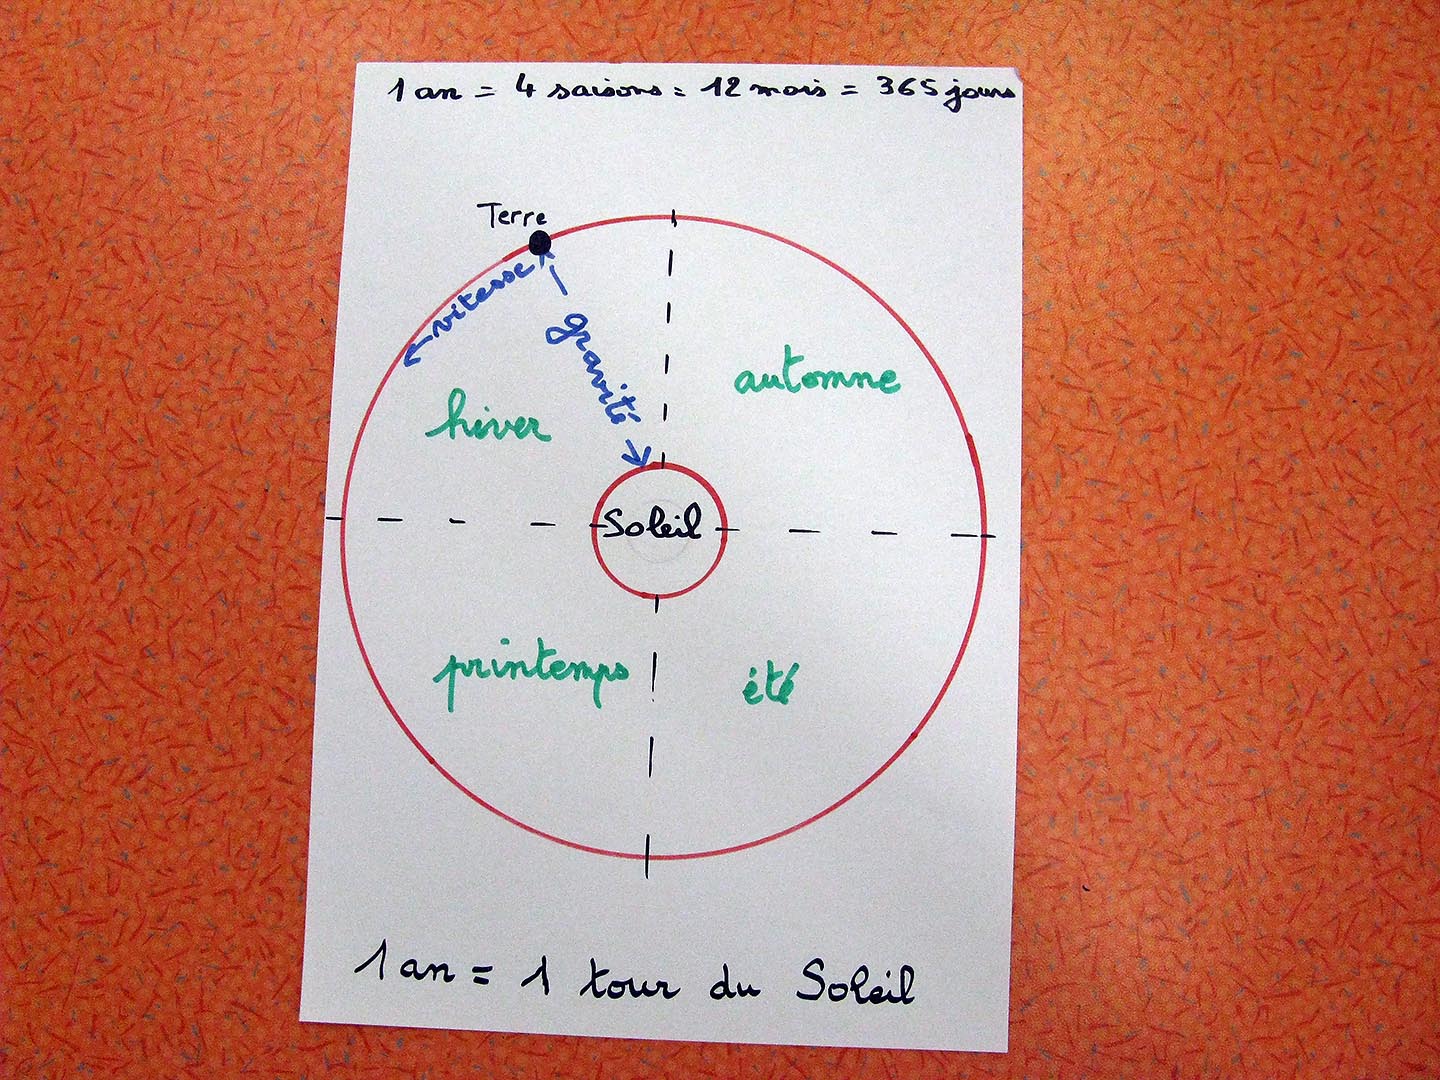 1 an = 4 saisons = 12 mois = 365 jours
Terre
vitesse
gravité
automne
hiver
Soleil
printemps
été
1 an = 1 tour du Soleil